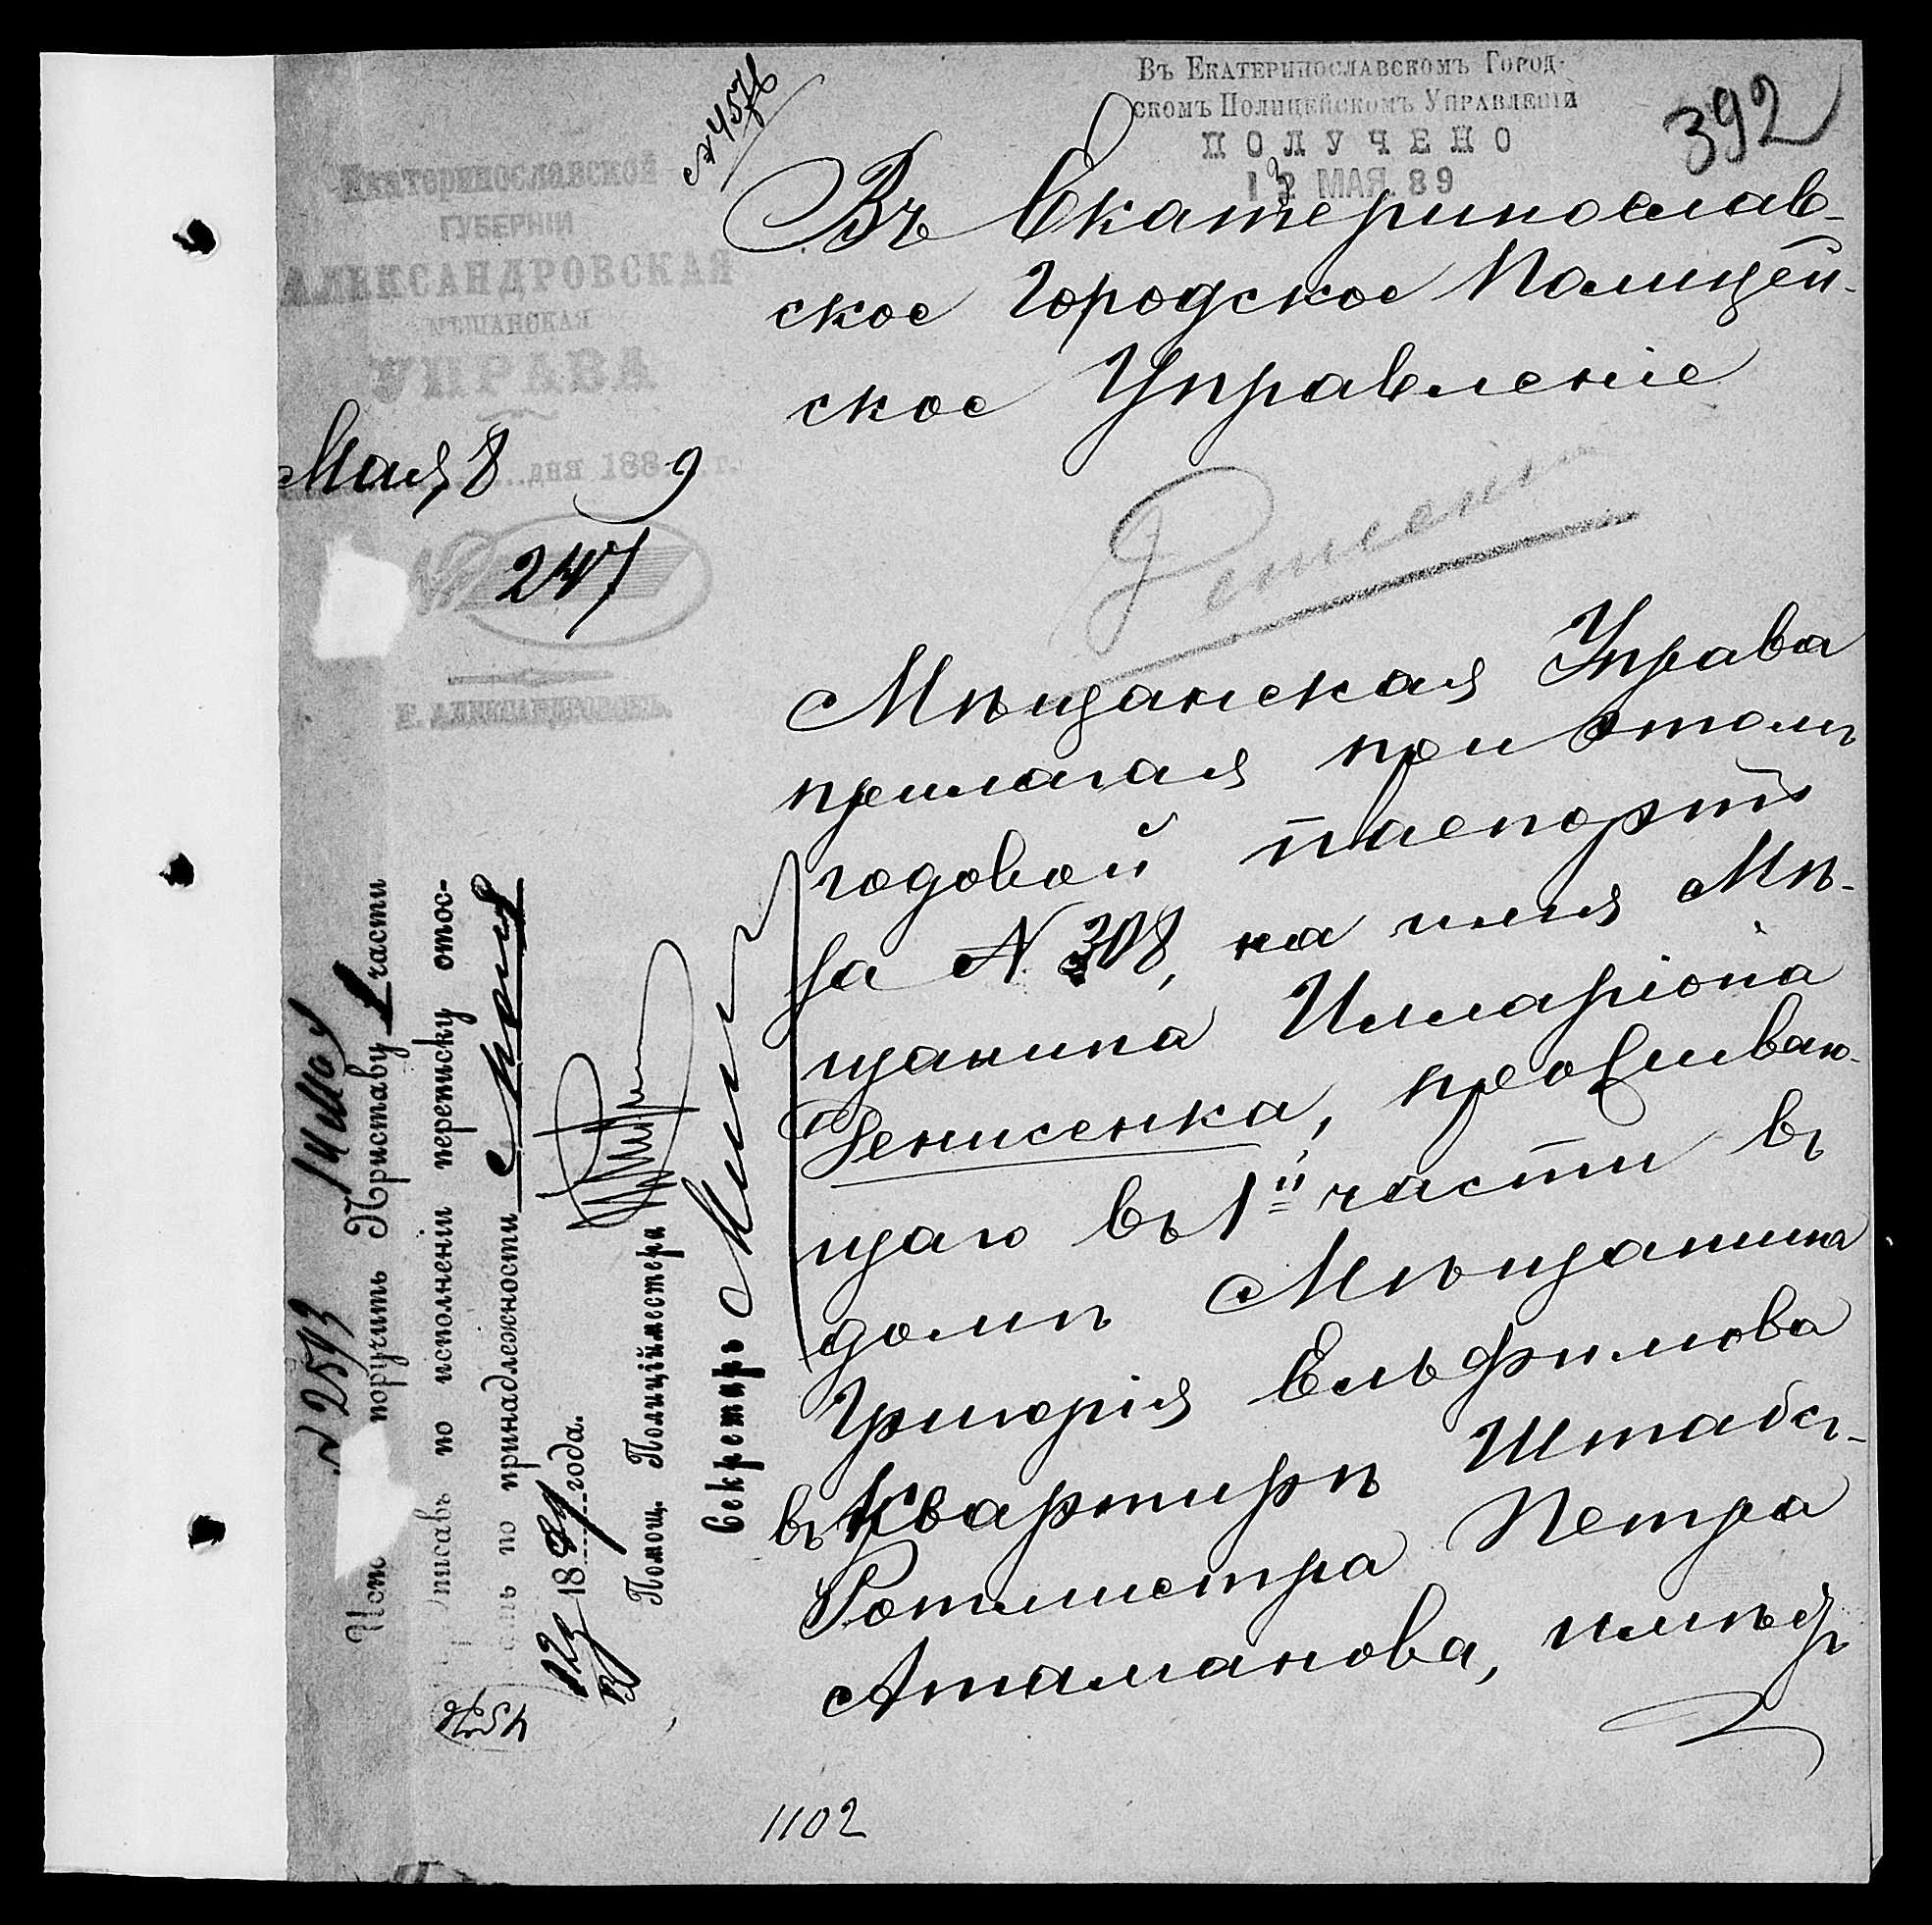 № 4576
Въ Екатеринославскомъ Город-
скомъ Полицейскомъ Управленіи
ПОЛУЧЕНО
МАЯ 89
392
Екатеринославской
ГУБЕРНІИ
АЛЕКСАНДРОВСКАЯ
МѢЩАНСКАЯ
УПРАВА
Мая 8 дня 1889 г.
№ 247
Г. АЛЕКСАНДРОВСКЪ.
Въ Екатеринослав-
ское Городское Полицей-
ское Управленіе
Мѣщанская Управа
прилагая при этомъ
годовой паспортъ
за № 308, на имя Мѣ-
щанина Илларіона
Денисенка, проживаю-
щаго въ 1й части въ
домѣ Мѣщанина
Григорія Ельфимова
въ квартирѣ Штабсъ-
Ротмистра Петра
Атаманова, имѣетъ
№ 2593 14 мая
поручить Приставу 1 части
писавъ по исполненіи переписку отос-
по принадлежности
12 1889 года.
Помощ. Полиціймейстера
Секретарь
1102